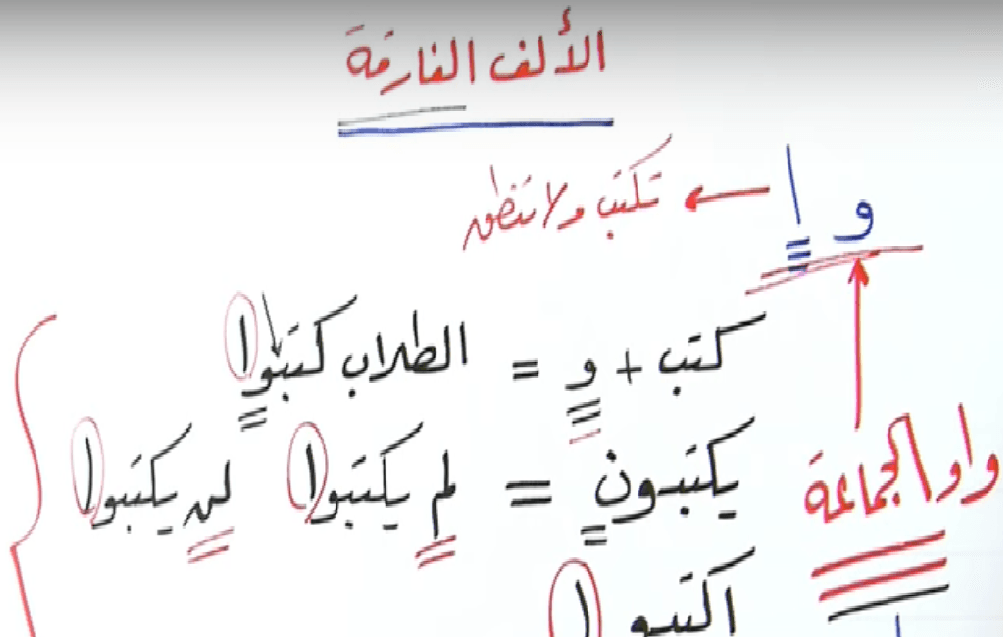 الألف الفارقة
و ا ← تكتب ولا تنطق
كتب + و = الطلاب كتبوا
واو الجماعة يكتبون = لم يكتبوا لن يكتبوا
اكتبوا